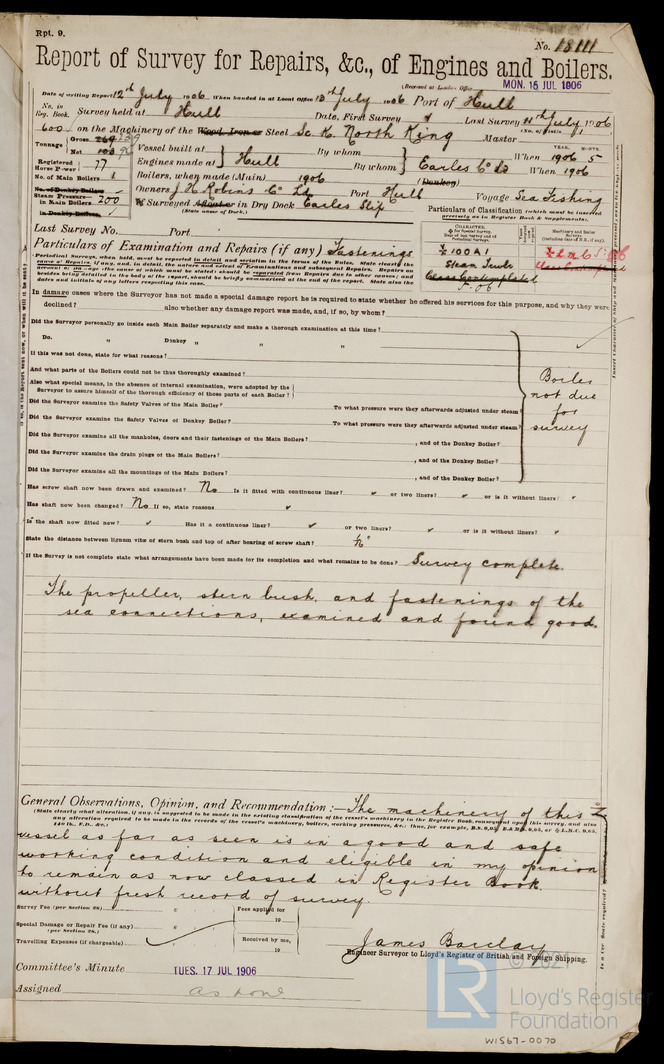 Rpt. 9.
No. 18111
Report of Survey for Repairs, &c., of Engines and Boilers.
(Received at London Office MON. 16 JUL 1906
Date of writing Report 12th July 1906 When handed in at Local Office 13th July 1906 Port of Hull
No. in Reg. Book. Survey held at Hull Date, First Survey Last Survey 11th July 1906
600 on the Machinery of the Wood, Iron or Steel Sc. K. North King Master
Tonnage Gross 269
Net 103
Vessel built at Hull By whom Earles Co Ld When 1906 5
Registered Horse Power 77
Engines made at By whom When 1906
No. of Main Boilers 1
Boilers, when made (Main) 1906 (Donkey)
No. of Donkey Boilers
Steam Pressure in Main Boilers 200
Owners J H Robins Co Ld Port Hull Voyage Sea Fishing
in Donkey Boilers
Surveyed Afloat or in Dry Dock Earles Slip
(State name of Dock.)
Particulars of Classification (which must be inserted precisely as in Register Book & Supplements).
Last Survey No. Port
100A1
Steam Trawler
Class Contemplated
5.06
Particulars of Examination and Repairs (if any) Fastenings
In damage cases where the Surveyor has not made a special damage report he is required to state whether he offered his services for this purpose, and why they were
declined? also whether any damage report was made, and, if so, by whom?
Did the Surveyor personally go inside each Main Boiler separately and make a thorough examination at this time?
Do. " Donkey " " "
If this was not done, state for what reasons?
And what parts of the Boilers could not be thus thoroughly examined?
Also what special means, in the absence of internal examination, were adopted by the
Surveyor to assure himself of the thorough efficiency of those parts of each Boiler?
Boiler not due for survey
Did the Surveyor examine the Safety Valves of the Main Boiler? To what pressure were they afterwards adjusted under steam?
Did the Surveyor examine the Safety Valves of Donkey Boiler? To what pressure were they afterwards adjusted under steam?
Did the Surveyor examine all the manholes, doors and their fastenings of the Main Boilers? , and of the Donkey Boiler?
Did the Surveyor examine the drain plugs of the Main Boilers? , and of the Donkey Boiler?
Did the Surveyor examine all the mountings of the Main Boilers? , and of the Donkey Boiler?
Has screw shaft now been drawn and examined? No Is it fitted with continuous liner? or two liners? or is it without liners?
Has shaft now been changed? No If so, state reasons
Is the shaft now fitted new? Has it a continuous liner? or two liners? or is it without liners?
State the distance between lignum vitæ of stern bush and top of after bearing of screw shaft?
If the Survey is not complete state what arrangements have been made for its completion and what remains to be done? Survey complete.
The propeller, stern bush, and fastenings of the
sea connections, examined and found good.
General Observations, Opinion, and Recommendation:— The machinery of this
(State clearly what alteration, if any, is suggested to be made in the existing classification of the vessel's machinery in the Register Book, consequent upon this survey, and also
any alteration required to be made in the records of the vessel's machinery, boilers, working pressures, &c.: thus, for example,
vessel as far as seen is in a good and safe
working condition and eligible in my opinion
to remain as now classed in Register Book.
without fresh record of survey.
Survey Fee (per Section 28) £ Fees applied for 19
Special Damage or Repair Fee (if any) (per Section 28.) £
Travelling Expenses (if chargeable) £ Received by me, 19
James Barclay
Engineer Surveyor to Lloyd's Register of British and Foreign Shipping.
Committee's Minute TUES. 17 JUL 1906
Assigned as now
© 2021
LR Lloyd's Register
Foundation
W1567-0070